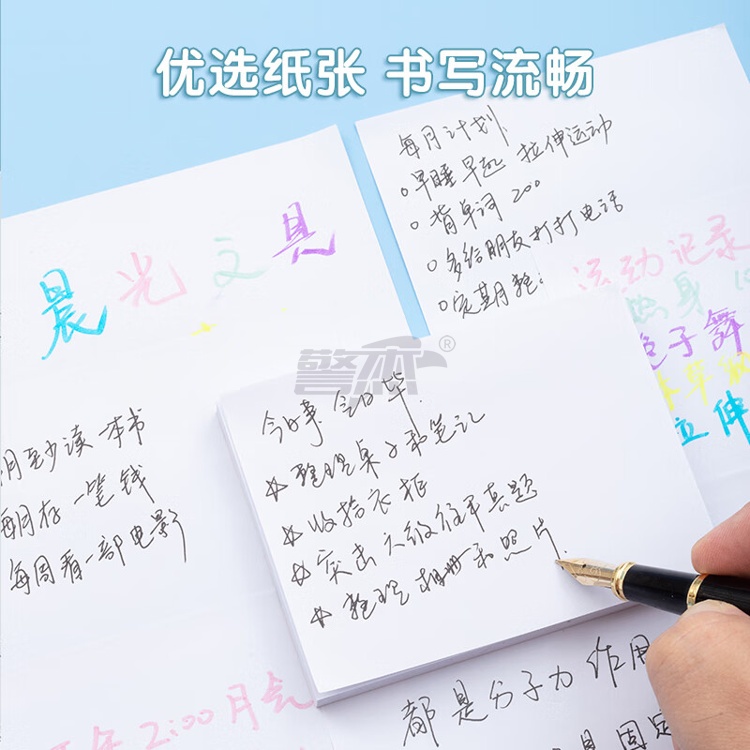 优选纸张 书写流畅
每月计划
早睡早起 拉伸运动
背单词 200
多给朋友打打电话
定期整:
晨光文具
运动记录
热身
绳子舞
拉伸
警杰®
今日事 今日毕.
整理桌子和笔记
收拾衣柜
突击六级往年真题
整理相册和照片.
月至少读一本书
每月存一笔钱
每周看一部电影
2:00月亮
都是分子力 作用
是固定